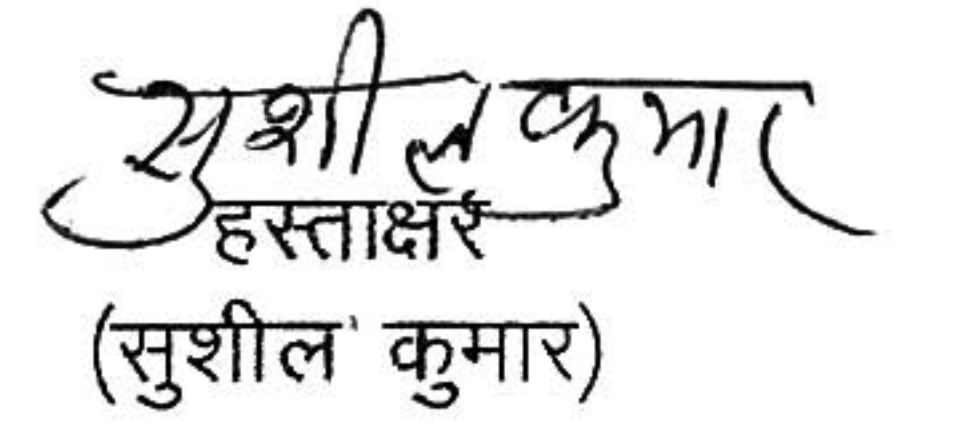 सुशील कुमार
हस्ताक्षर
(सुशील कुमार)